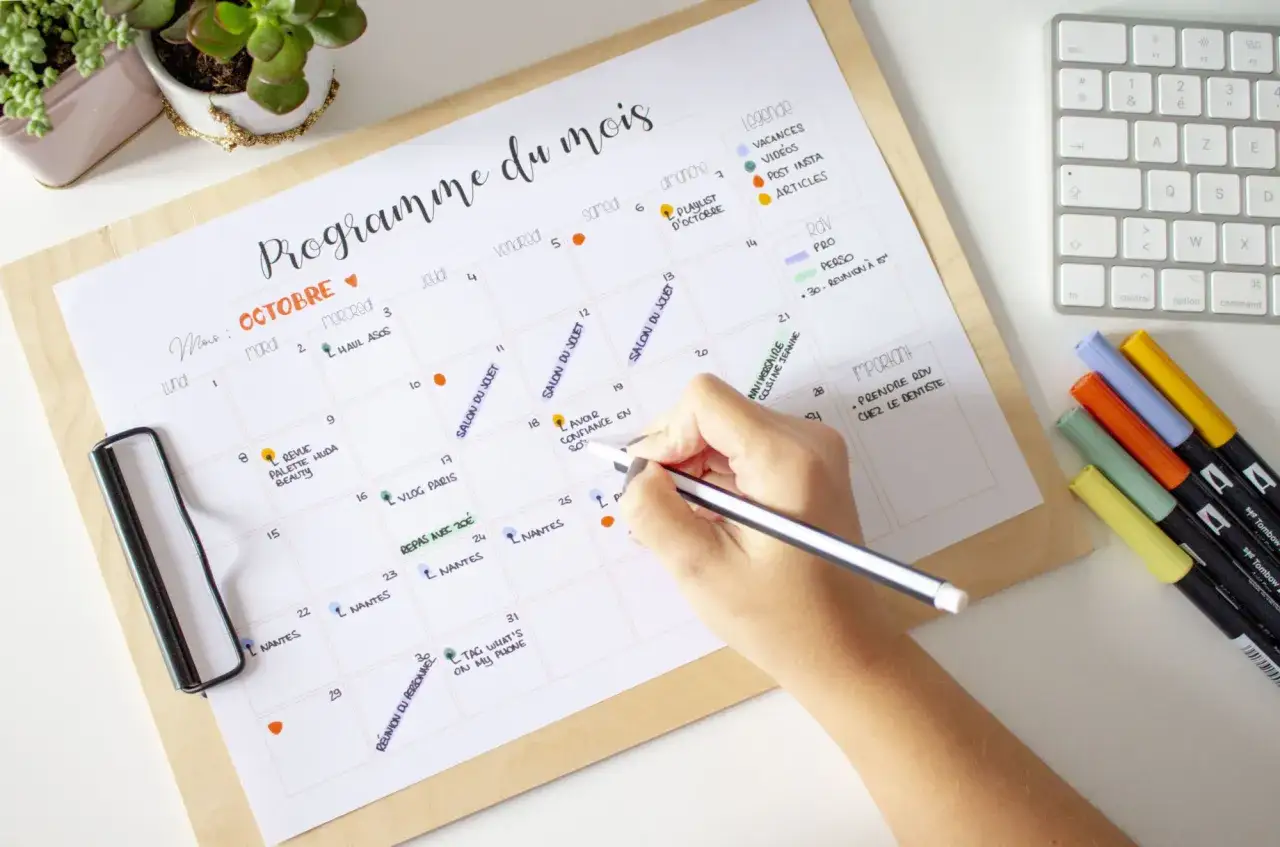 Programme du mois
Mois : OCTOBRE
lundi
mardi
mercredi
jeudi
vendredi
samedi
dimanche
1
2
3
HAUL ASOS
4
5
6
7
PLAYLIST
D'OCTOBRE
8
9
REVUE
PALETTE HUDA
BEAUTY
10
11
SALON DU JOUET
12
SALON DU JOUET
13
SALON DU JOUET
14
15
16
17
VLOG PARIS
18
19
AVOIR
CONFIANCE EN
20
21
ANNIVERSAIRE
COUSINE JEANNE
22
NANTES
23
NANTES
24
REPAS AVEC ZOÉ
NANTES
25
NANTES
28
29
30
RÉUNION DU PERSONNEL
31
TAG WHAT'S
ON MY PHONE
Légende
VACANCES
VIDÉOS
POST INSTA
ARTICLES
RDV
PRO
PERSO
• 30 - REUNION À
IMPORTANT
• PRENDRE RDV
CHEZ LE DENTISTE
1
&
2
é
3
4
A
Z
E
Q
S
D
>
<
W
X
control
option
command
Tombow
Tombow